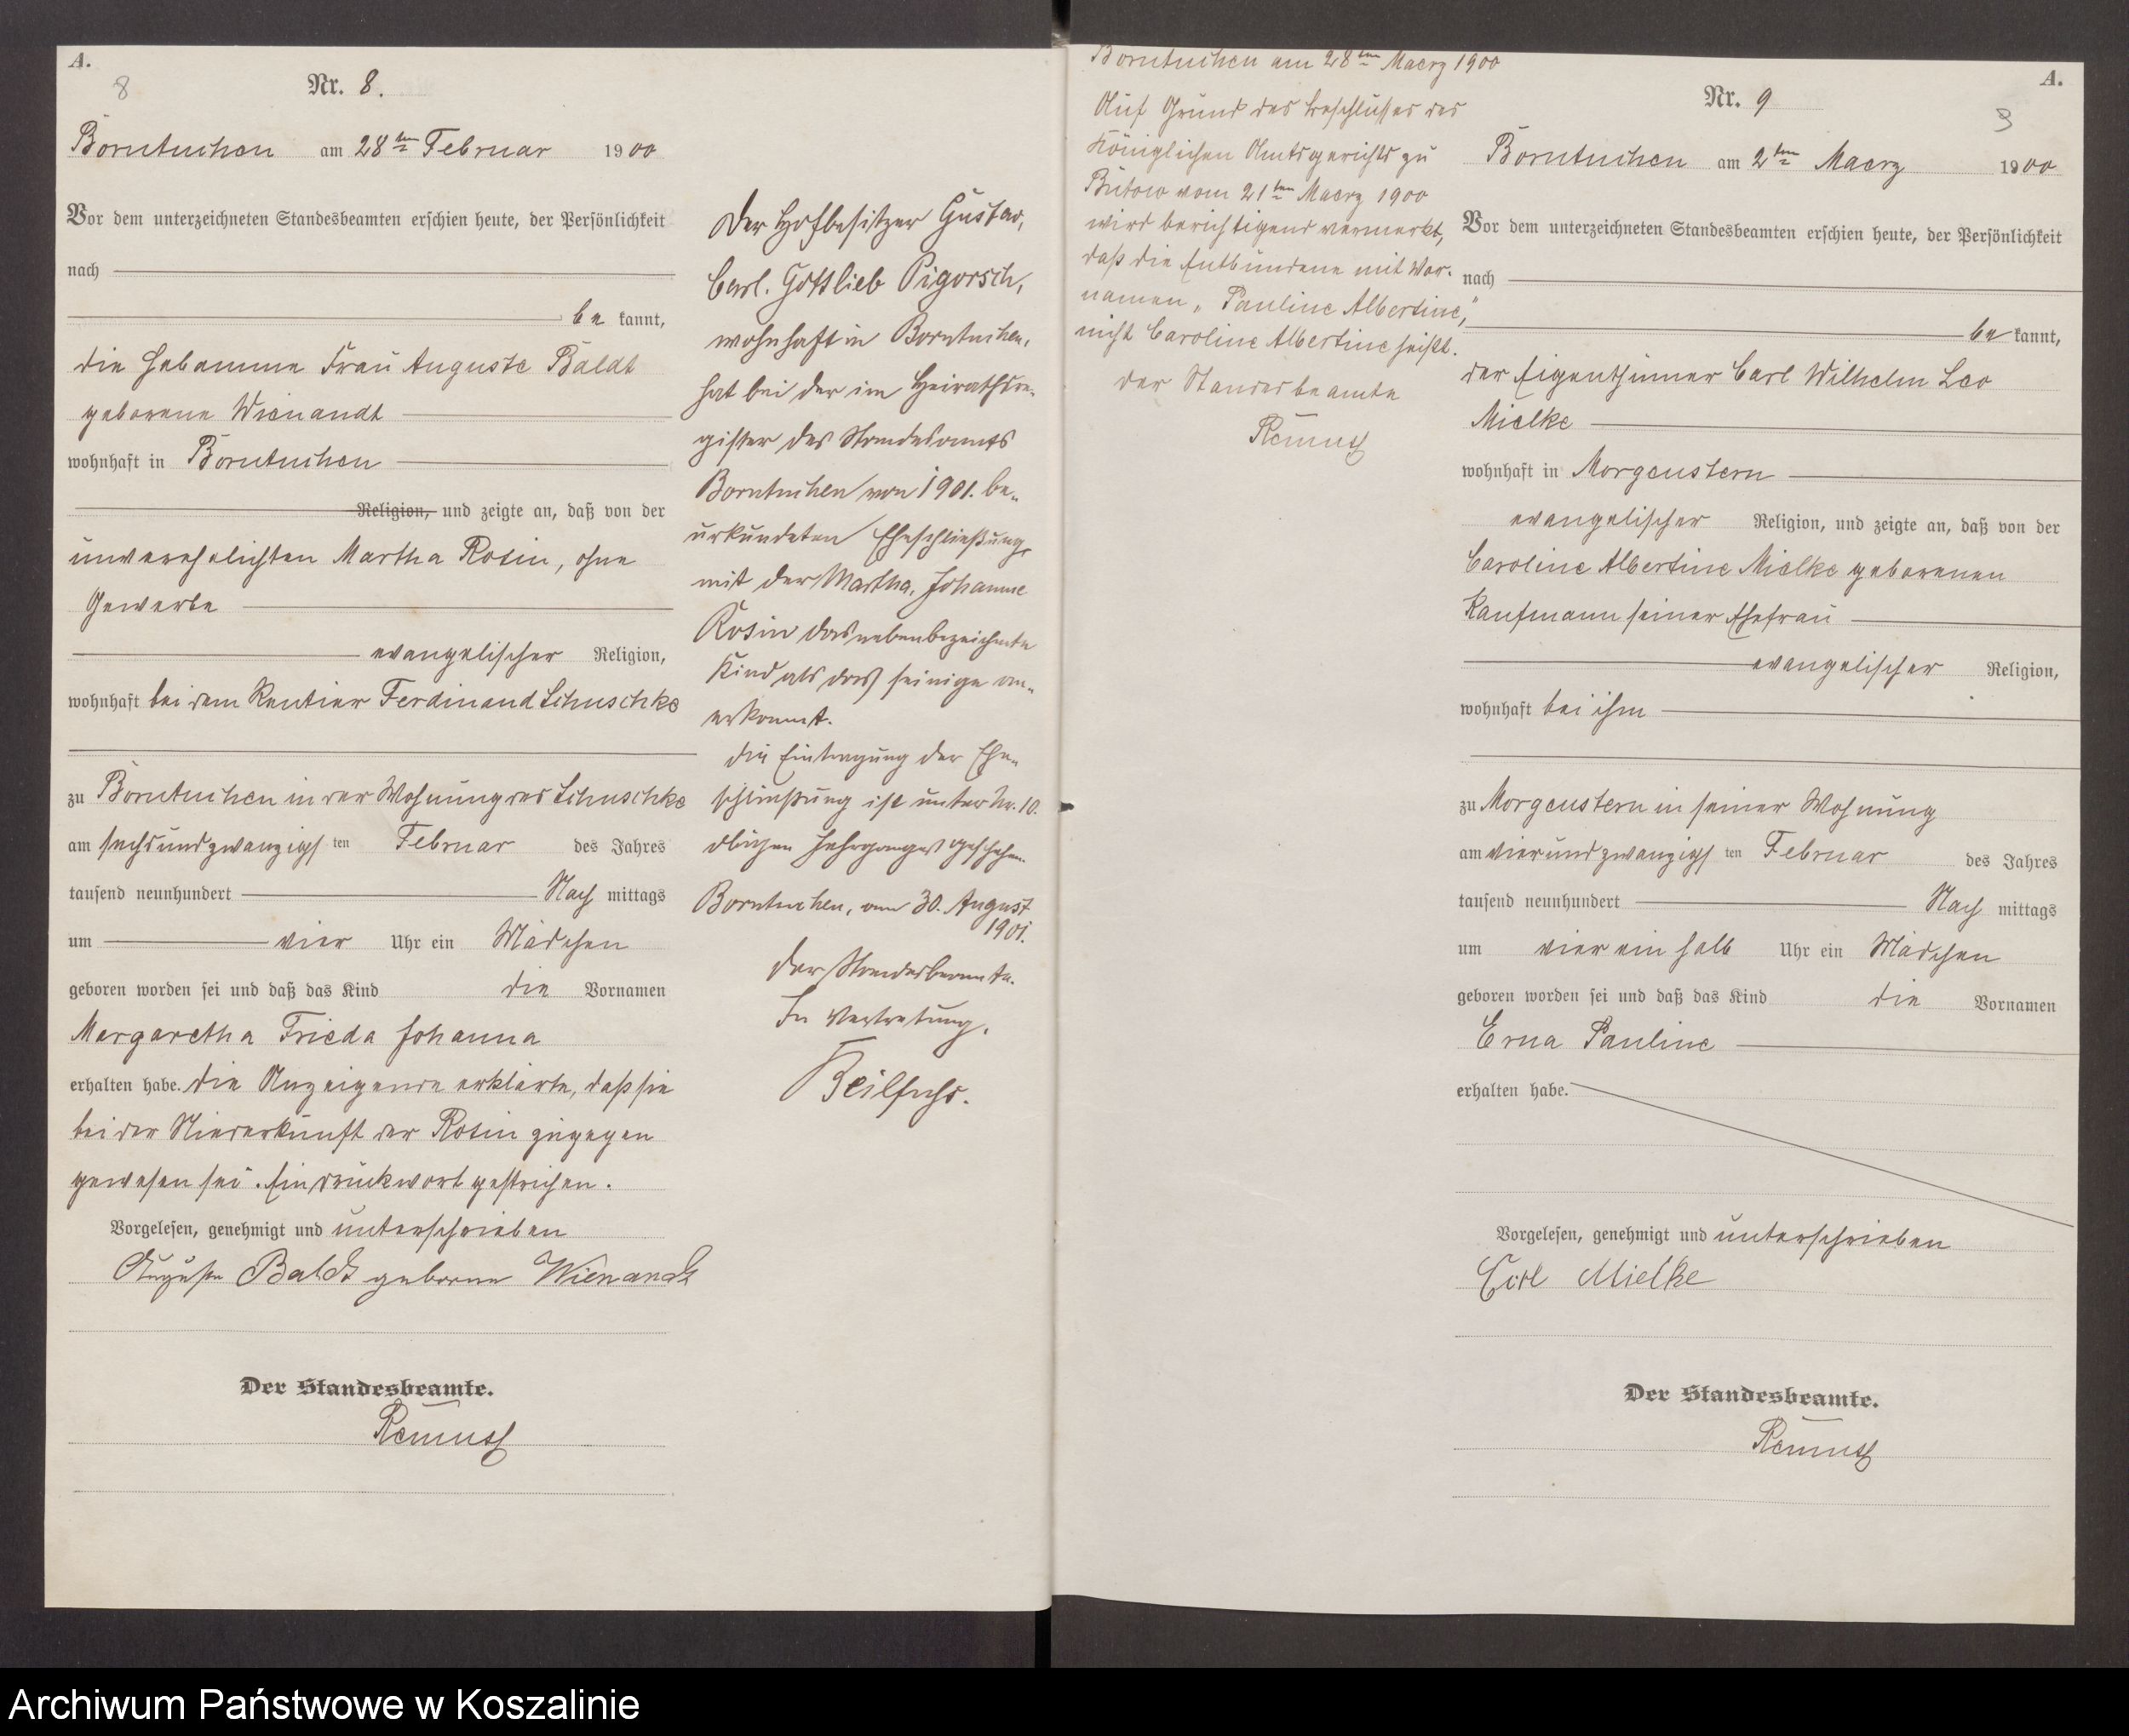 A.
8
Nr. 8.
Borntuchen am 28ten Februar 1900
Vor dem unterzeichneten Standesbeamten erschien heute, der Persönlichkeit
nach
be kannt,
die Hebamme Frau Auguste Baldt
geborene Wienandt
wohnhaft in Borntuchen
Religion, und zeigte an, daß von der
unverehelichten Martha Rosin, ohne
Gewerbe
evangelischer Religion,
wohnhaft bei dem Rentier Ferdinand Schuschke
zu Borntuchen in der Wohnung des Schuschke
am sechsundzwanzigsten Februar des Jahres
tausend neunhundert Nach mittags
um vier Uhr ein Mädchen
geboren worden sei und daß das Kind die Vornamen
Margaretha Frieda Johanna
erhalten habe. Die Anzeigende erklärte, daß sie
bei der Niederkunft der Rosin zugegen
gewesen sei. Ein Druckwort gestrichen.
Vorgelesen, genehmigt und unterschrieben
Auguste Baldt geborne Wienandt
Der Standesbeamte.
Remus
Der Hofbesitzer Gustav,
Carl. Gottlieb Pigorsch,
wohnhaft in Borntuchen,
hat bei der im Heirathsre-
gister des Standesamts
Borntuchen von 1901. be-
urkundeten Eheschließung
mit der Martha, Johanne
Rosin das nebenbezeichnete
Kind als das seinige an-
erkannt.
Die Eintragung der Ehe-
schließung ist unter Nr. 10.
Jahrganges geschehen.
Borntuchen, am 30. August
1901.
Der Standesbeamte.
In Vertretung.
Beilfuss.
Borntuchen am 28ten Maerz 1900
Auf Grund des Beschlusses des
Königlichen Amtsgerichts zu
Bütow vom 21ten Maerz 1900
wird berichtigend vermerkt,
daß die Entbundene mit Vor-
namen „Pauline Albertine,"
nicht Caroline Albertine heißt.
Der Standesbeamte
Remus
A.
Nr. 9
9
Borntuchen am 2ten Maerz 1900
Vor dem unterzeichneten Standesbeamten erschien heute, der Persönlichkeit
nach
be kannt,
der Eigenthümer Carl Wilhelm Leo
Mielke
wohnhaft in Morgenstern
evangelischer Religion, und zeigte an, daß von der
Caroline Albertine Mielke geborenen
Kaufmann seiner Ehefrau
evangelischer Religion,
wohnhaft bei ihm
zu Morgenstern in seiner Wohnung
am vierundzwanzigsten Februar des Jahres
tausend neunhundert Nach mittags
um vier ein halb Uhr ein Mädchen
geboren worden sei und daß das Kind die Vornamen
Erna Pauline
erhalten habe.
Vorgelesen, genehmigt und unterschrieben
Carl Mielke
Der Standesbeamte.
Remus
Archiwum Państwowe w Koszalinie